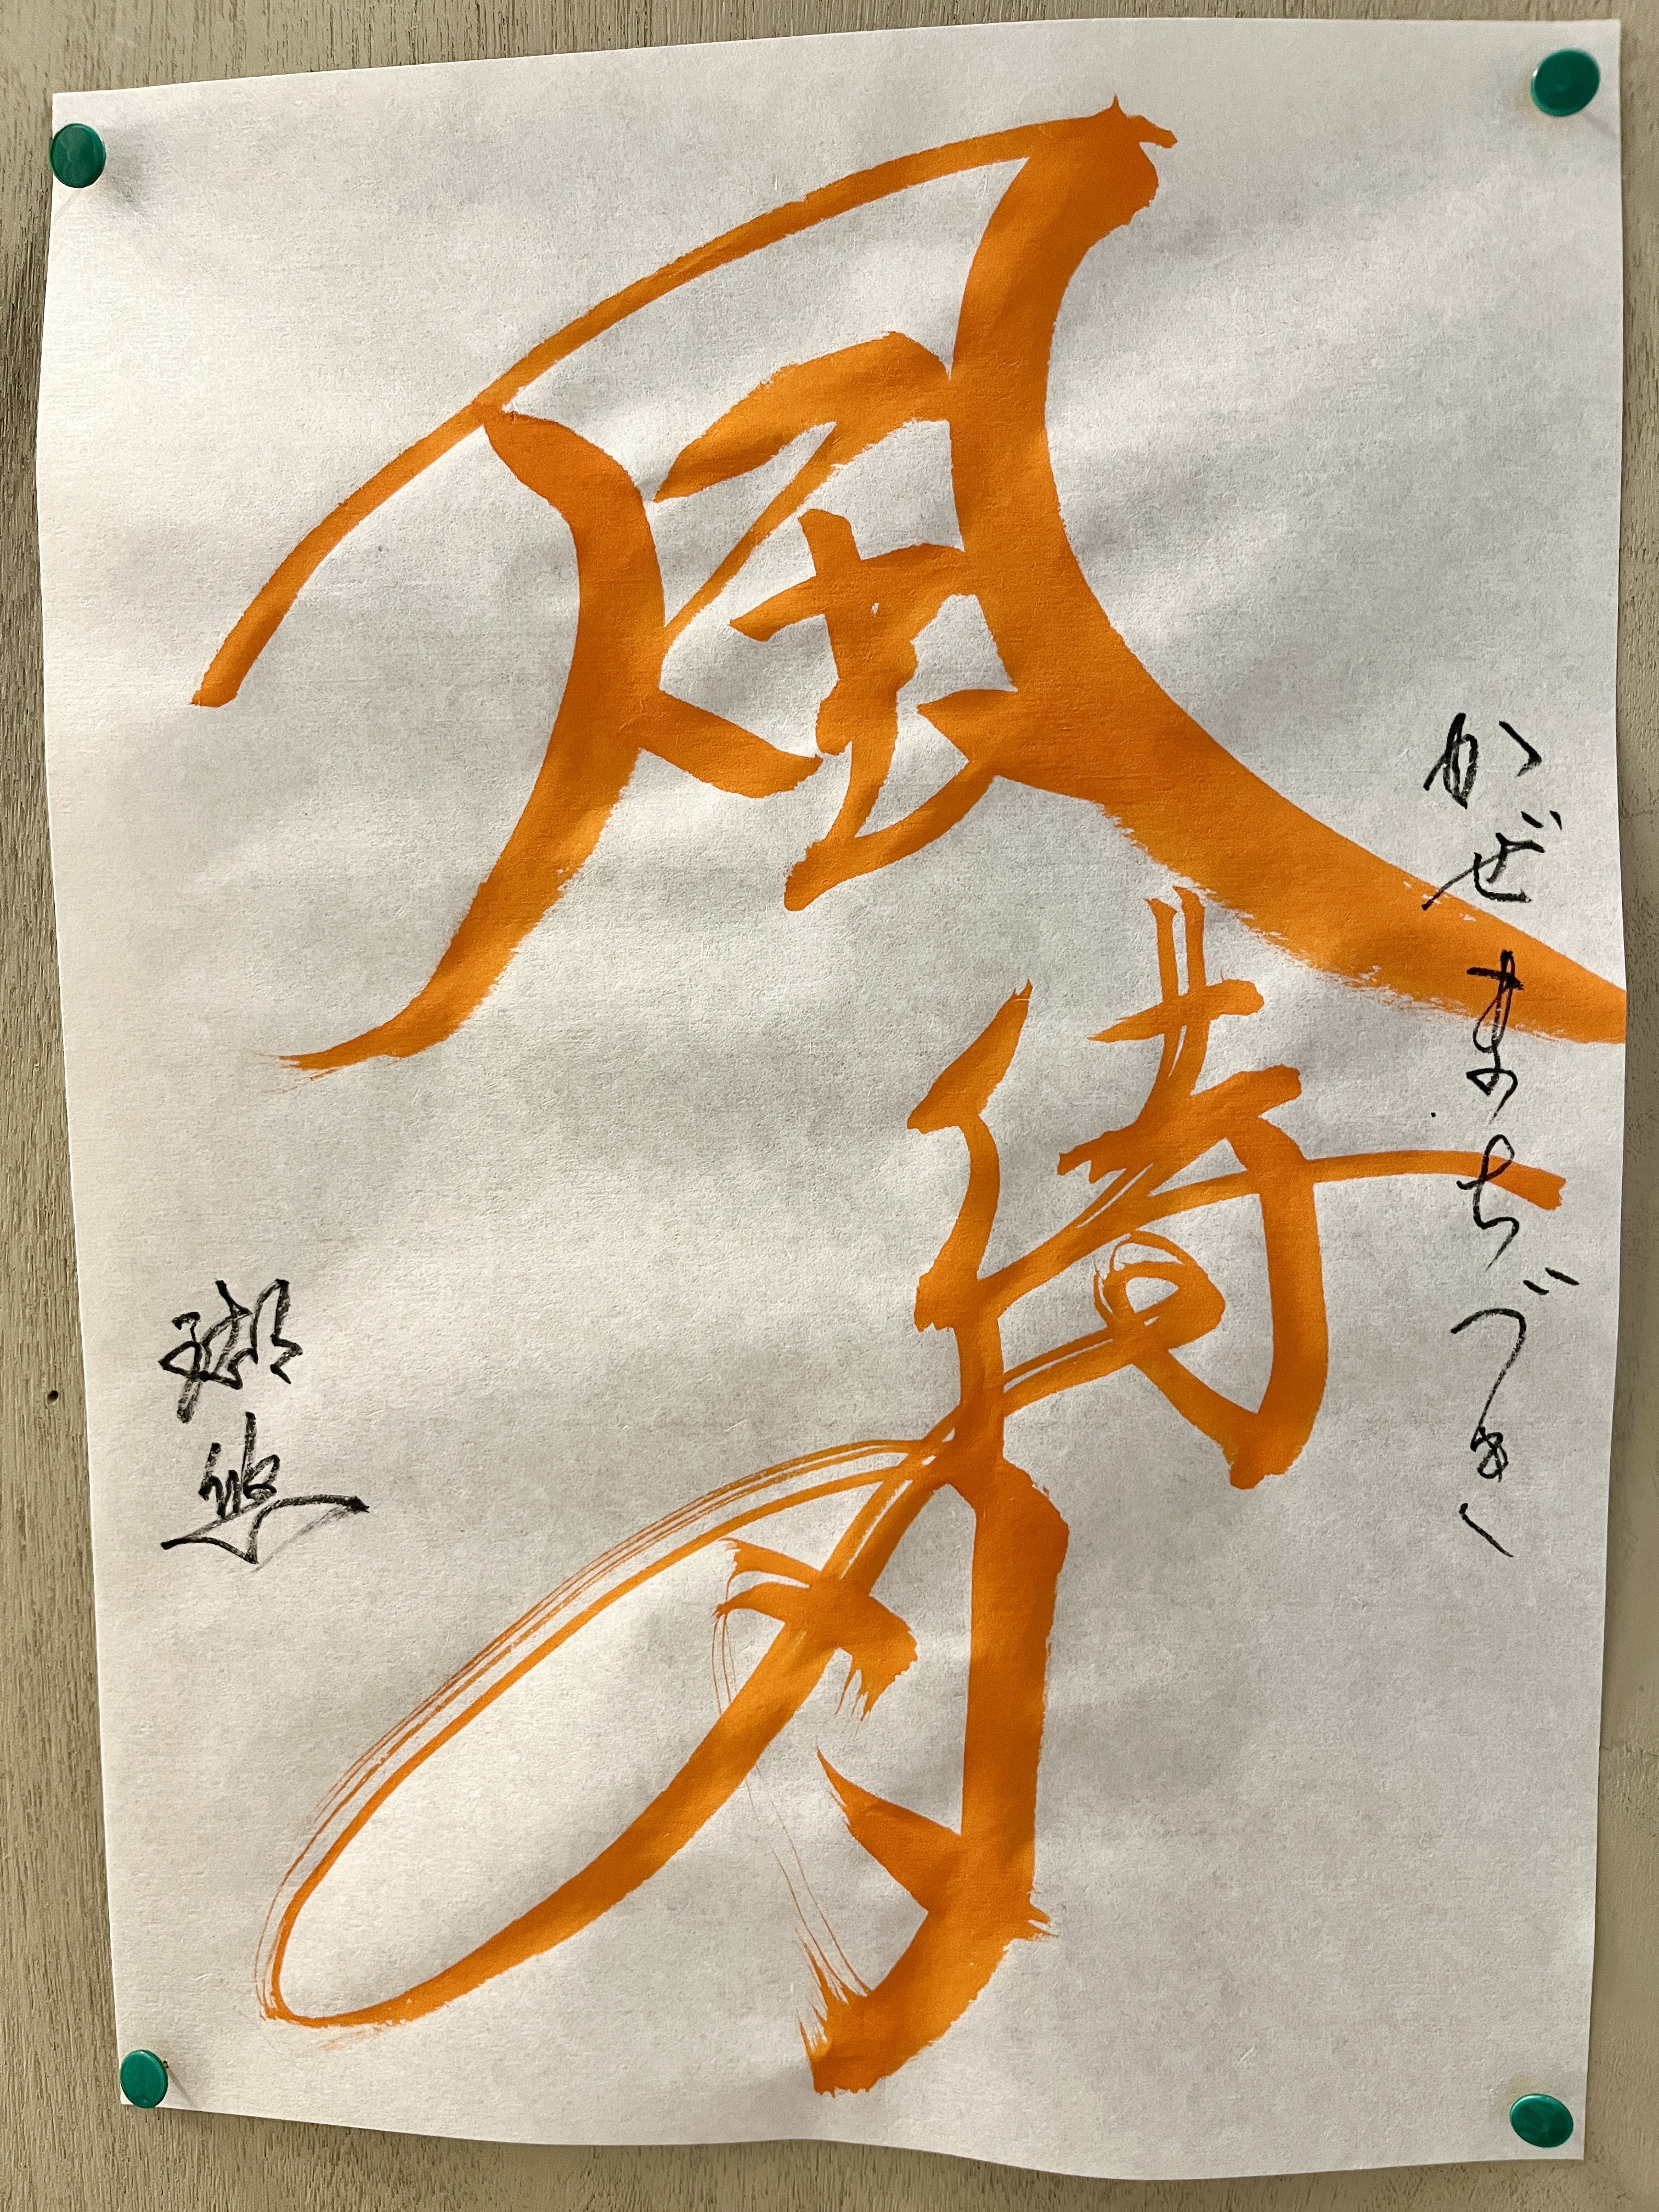 かぜまちづき
風待月